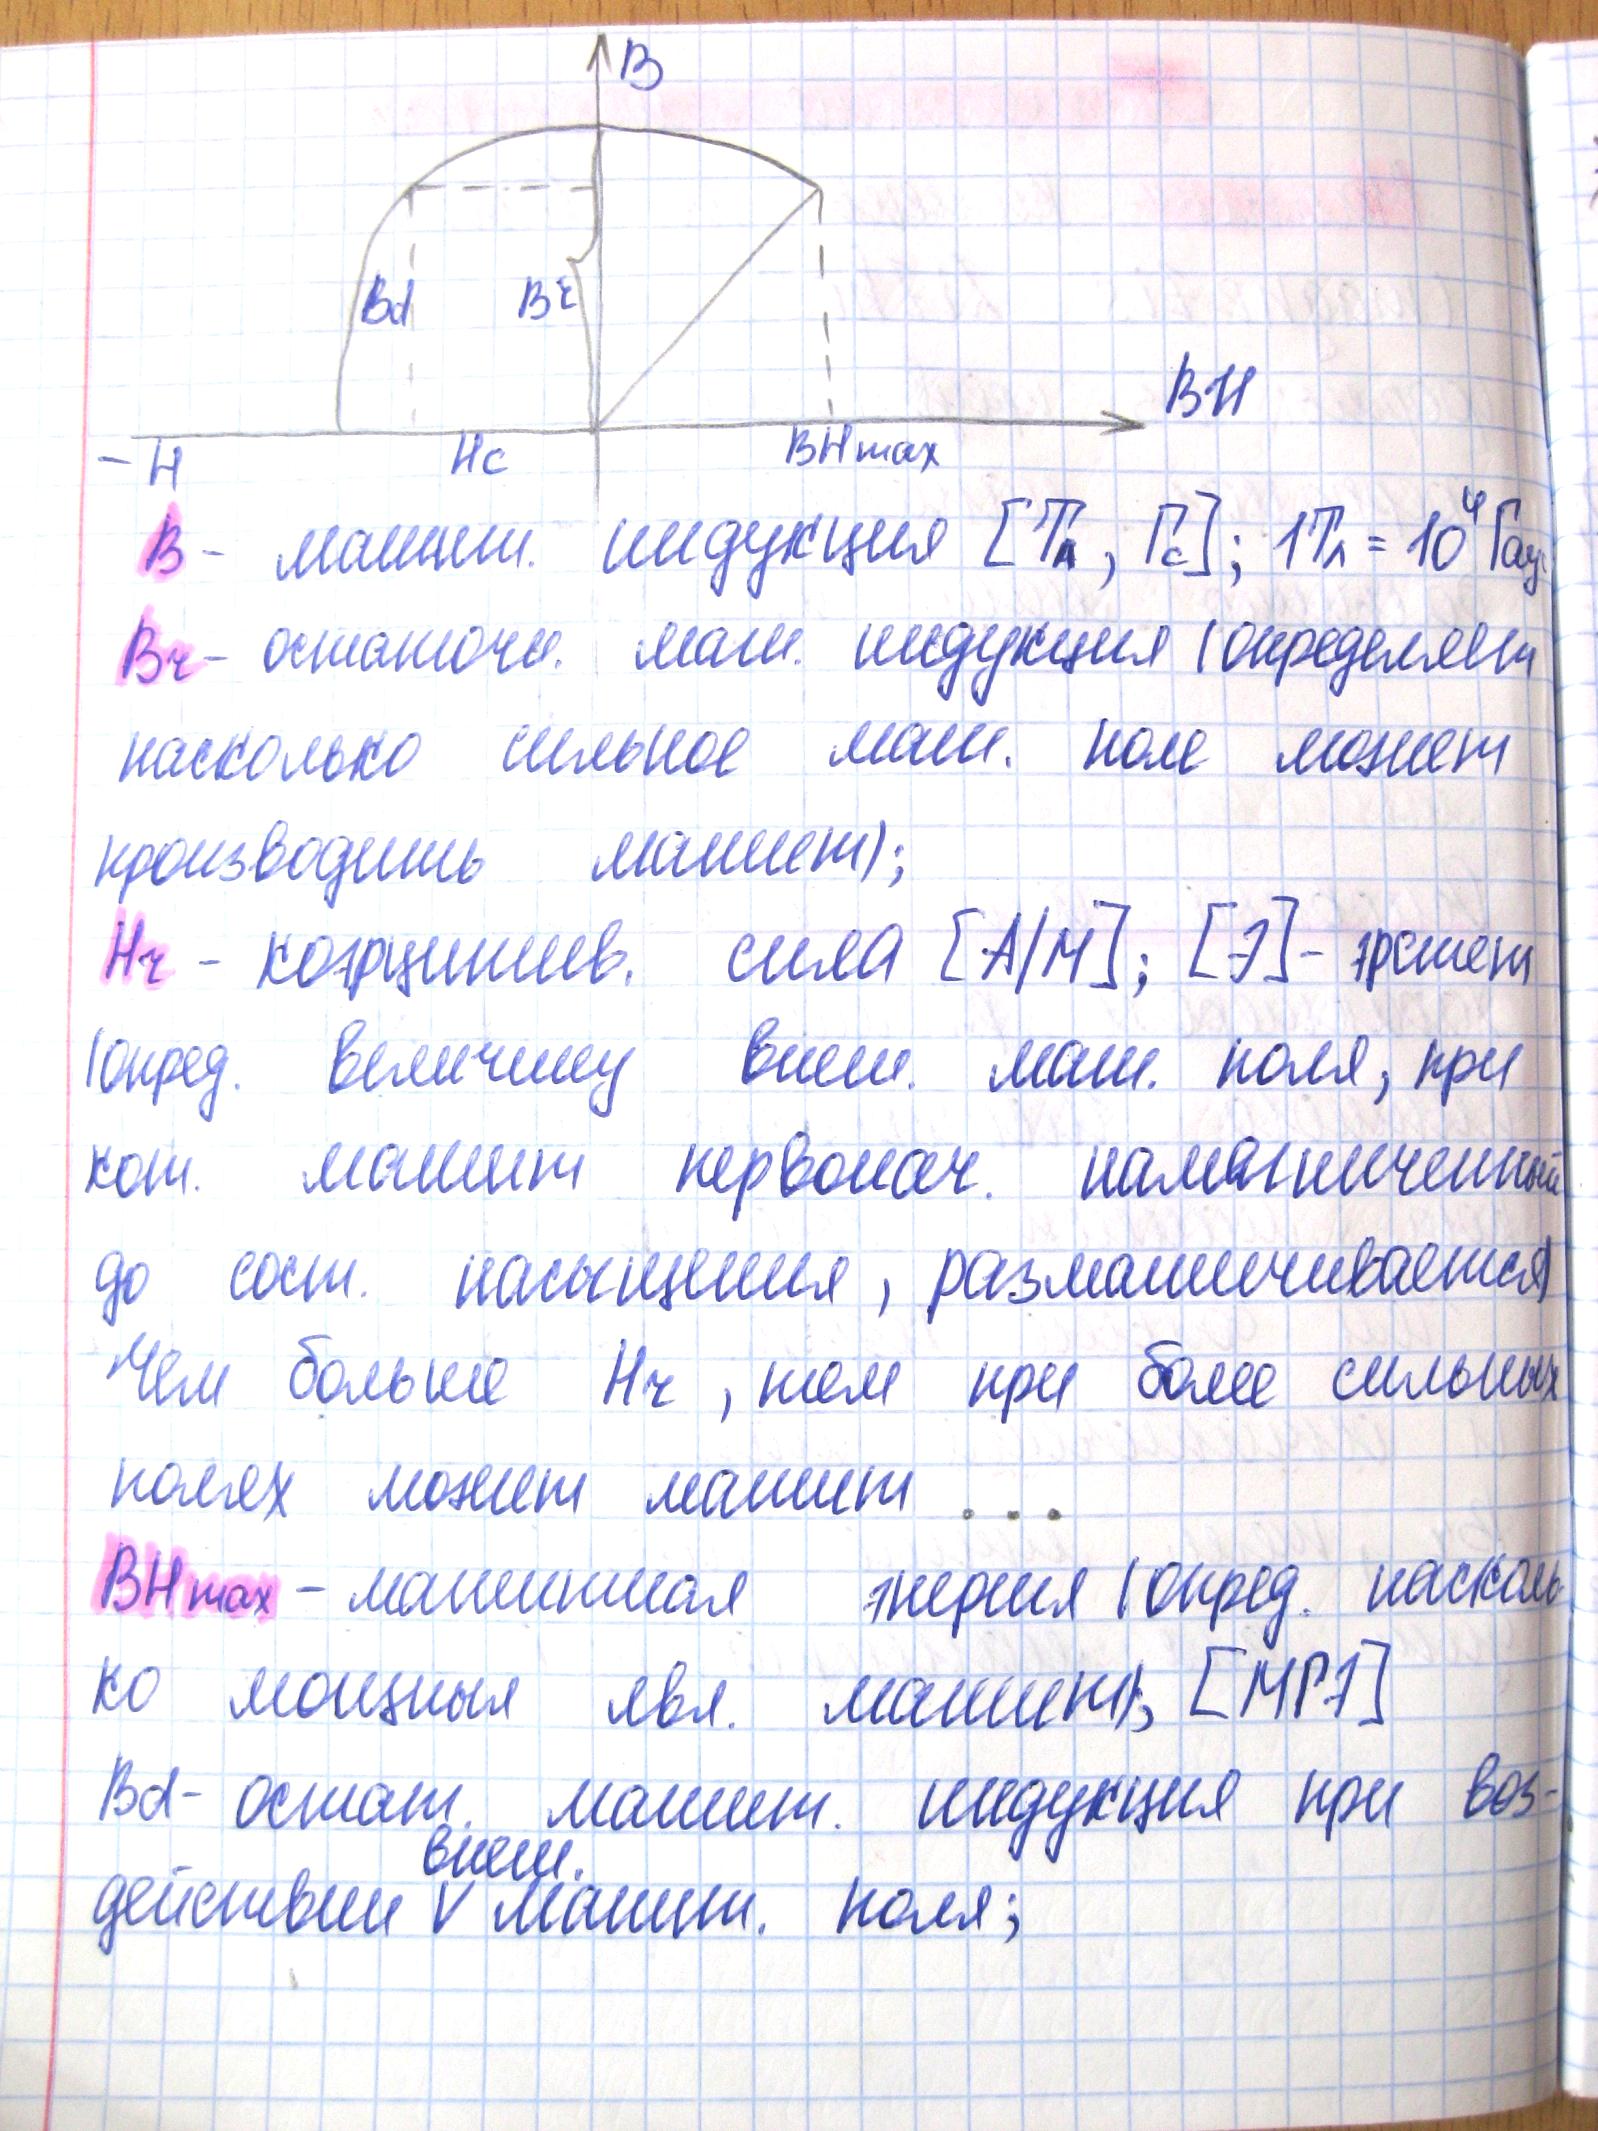 B
Bd
Br
BH
-H
Hc
BHmax
B - магнит. индукция [Тл, Гс]; 1Тл = 10⁴ Гаус
Br - остаточн. магн. индукция (определяет
насколько сильное магн. поле может
производить магнет);
Hr - коэрцитив. сила [А/М]; [Э] - эрстет
(опред. величину внеш. магн. поля, при
кот. магнит первонач. намагниченный
до сост. насыщения, размагничивается)
Чем больше Hr, тем при более сильных
полях может магнит ...
BHmax - магнитная энергия (опред. насколь
ко мощныя явл. магнит); [МГЭ]
Bd - остат. магнит. индукция при воз-
внеш.
действии V магнит. поля;